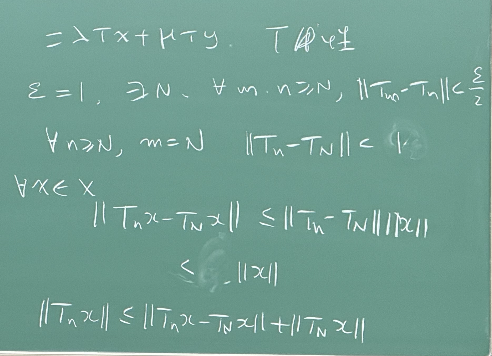 = λTx + μTy. T 线性
ε = 1, ∃N. ∀ m.n ≥ N, ||Tm - Tn|| < ε/2
∀ n ≥ N, m = N ||Tn - TN|| < 1.
∀x ∈ X
||Tnx - TNx|| ≤ ||Tn - TN|| ||x||
≤ ||x||
||Tnx|| ≤ ||Tnx - TNx|| + ||TNx||